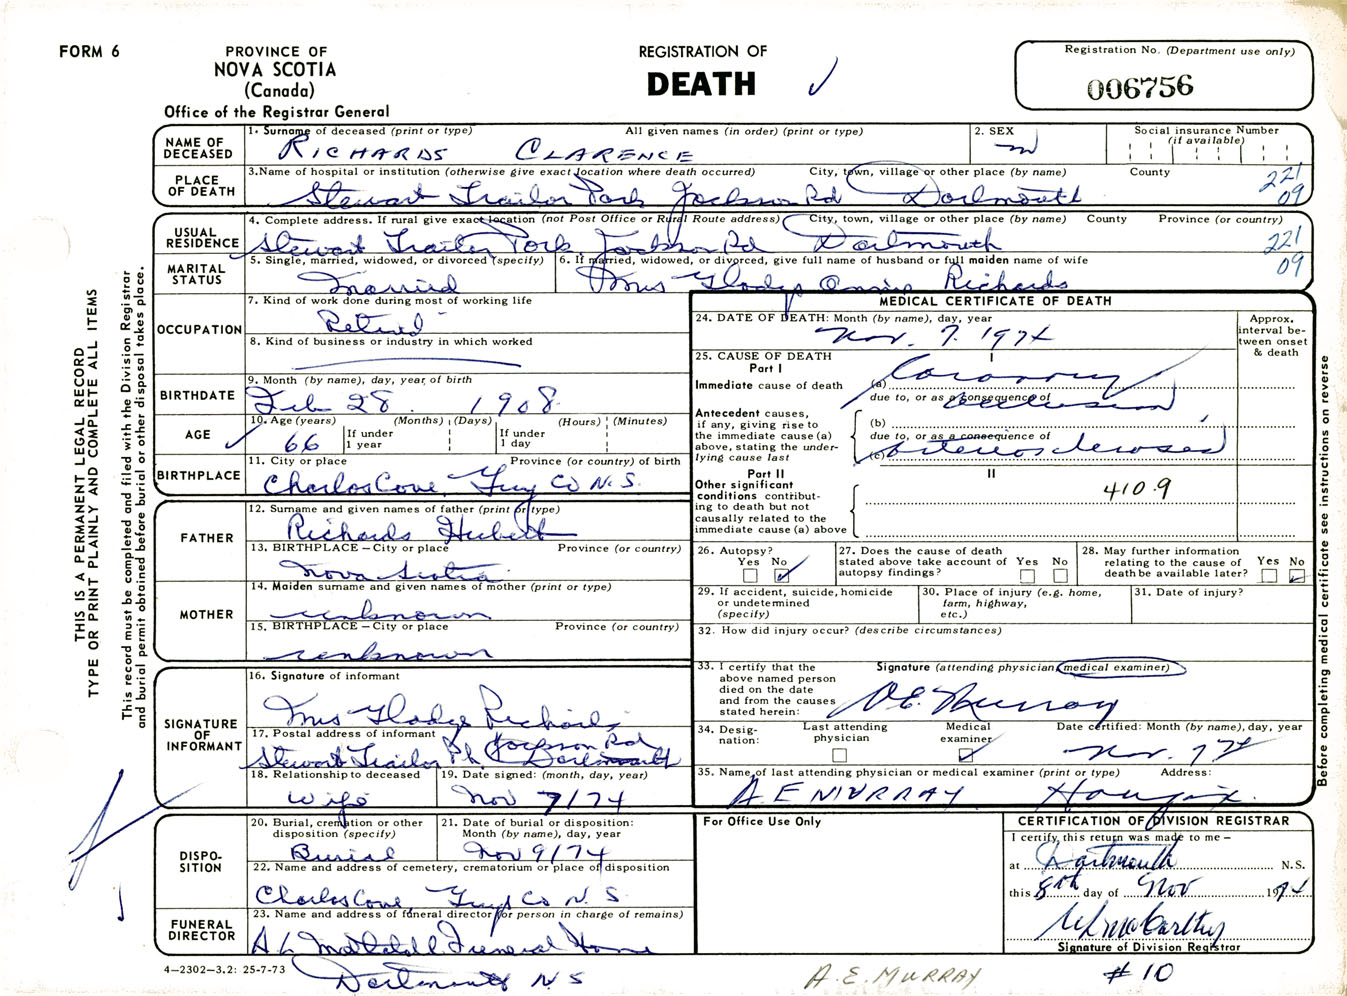 FORM 6
PROVINCE OF
NOVA SCOTIA
(Canada)
Office of the Registrar General
REGISTRATION OF
DEATH
Registration No. (Department use only)
006756
THIS IS A PERMANENT LEGAL RECORD
TYPE OR PRINT PLAINLY AND COMPLETE ALL ITEMS
This record must be completed and filed with the Division Registrar
and burial permit obtained before burial or other disposal takes place.
NAME OF DECEASED
1. Surname of deceased (print or type) All given names (in order) (print or type)
RICHARDS CLARENCE
2. SEX
m
Social insurance Number
(if available)
PLACE OF DEATH
3. Name of hospital or institution (otherwise give exact location where death occurred) City, town, village or other place (by name) County
Stewart Trailor Park Jackson Rd Dartmouth
221
09
USUAL RESIDENCE
4. Complete address. If rural give exact location (not Post Office or Rural Route address) City, town, village or other place (by name) County Province (or country)
Stewart Trailer Park Jackson Rd Dartmouth
221
09
MARITAL STATUS
5. Single, married, widowed, or divorced (specify)
Married
6. If married, widowed, or divorced, give full name of husband or full maiden name of wife
Mrs Gladys Richards
OCCUPATION
7. Kind of work done during most of working life
Retired
8. Kind of business or industry in which worked
BIRTHDATE
9. Month (by name), day, year of birth
Feb 28 1908
AGE
10. Age (years) (Months) (Days) (Hours) (Minutes)
66 If under 1 year If under 1 day
BIRTHPLACE
11. City or place Province (or country) of birth
Charlos Cove Guy Co N.S.
FATHER
12. Surname and given names of father (print or type)
Richards Hubert
13. BIRTHPLACE – City or place Province (or country)
Nova Scotia
MOTHER
14. Maiden surname and given names of mother (print or type)
unknown
15. BIRTHPLACE – City or place Province (or country)
unknown
SIGNATURE OF INFORMANT
16. Signature of informant
Mrs Gladys Richards
17. Postal address of informant
Stewart Trailor Pk Jackson Rd
Dartmouth
18. Relationship to deceased
Wife
19. Date signed: (month, day, year)
Nov 7/74
DISPO-
SITION
20. Burial, cremation or other disposition (specify)
Burial
21. Date of burial or disposition: Month (by name), day, year
Nov 9/74
22. Name and address of cemetery, crematorium or place of disposition
Charlos Cove Guys Co N.S.
FUNERAL DIRECTOR
23. Name and address of funeral director (or person in charge of remains)
Funeral Home
Dartmouth N S
4–2302–3.2: 25-7-73
MEDICAL CERTIFICATE OF DEATH
24. DATE OF DEATH: Month (by name), day, year
Nov. 7. 1974
Approx. interval be-
tween onset & death
25. CAUSE OF DEATH
Part I
I
Immediate cause of death
(a) Coronary
due to, or as a consequence of
occlusion
Antecedent causes, if any, giving rise to the immediate cause (a) above, stating the under-
lying cause last
(b)
due to, or as a consequence of
(c) arteriosclerosis
Part II
II
Other significant conditions contribut-
ing to death but not causally related to the immediate cause (a) above
410.9
26. Autopsy?
Yes No
27. Does the cause of death stated above take account of autopsy findings?
Yes No
28. May further information relating to the cause of death be available later?
Yes No
29. If accident, suicide, homicide or undetermined (specify)
30. Place of injury (e.g. home, farm, highway, etc.)
31. Date of injury?
32. How did injury occur? (describe circumstances)
33. I certify that the above named person died on the date and from the causes stated herein:
Signature (attending physician, medical examiner)
A.E. Murray
34. Desig-
nation:
Last attending physician
Medical examiner
Date certified: Month (by name), day, year
Nov. 7 74
35. Name of last attending physician or medical examiner (print or type) Address:
A. E MURRAY Halifax
Before completing medical certificate see instructions on reverse
For Office Use Only
CERTIFICATION OF DIVISION REGISTRAR
I certify, this return was made to me –
at Dartmouth N.S.
this 8th day of Nov 1974
McCarthy
Signature of Division Registrar
A.E. MURRAY
# 10